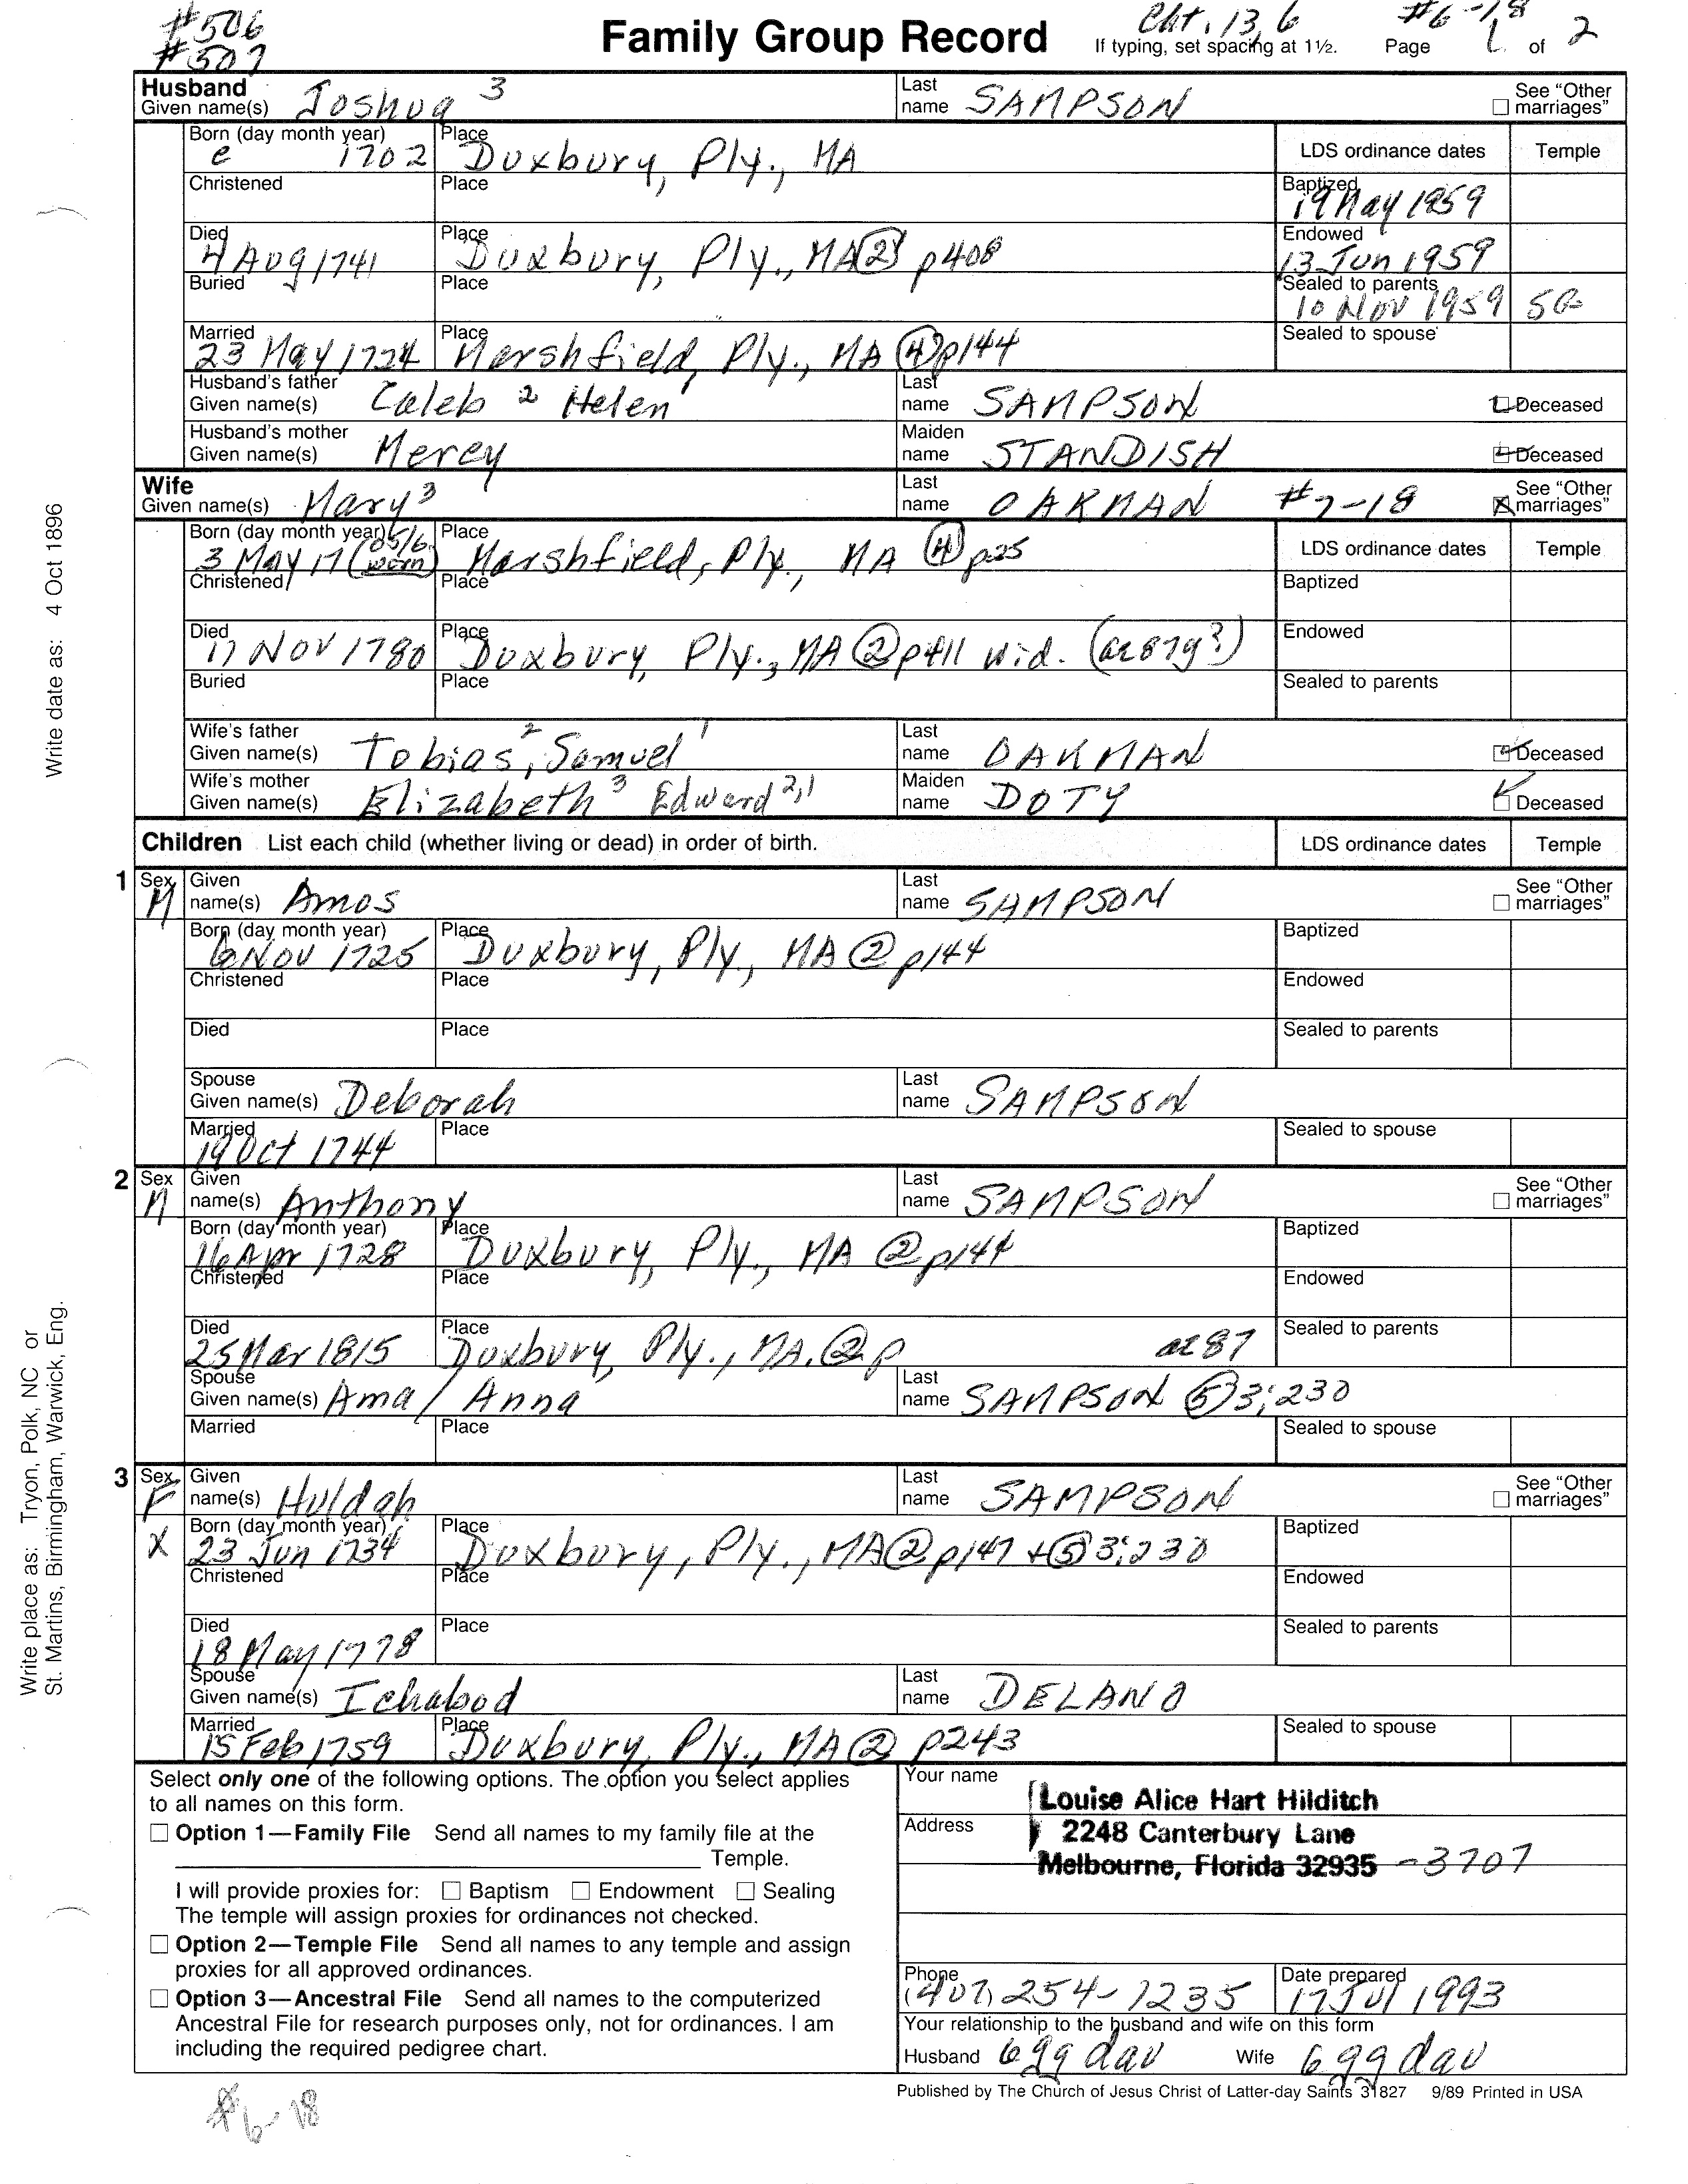 #506 Family Group Record Cht. 13, 6 #6-18
#507 If typing, set spacing at 1½. Page 1 of 2
Husband Given name(s) Joshua 3 Last name SAMPSON See "Other marriages"
Born (day month year) c 1702 Place Duxbury, Ply., MA LDS ordinance dates Temple
Christened Place Baptized 19 May 1959
Died 4 Aug 1741 Place Duxbury, Ply., MA 2 p408 Endowed 13 Jun 1959
Buried Place Sealed to parents 10 Nov 1959
Married 23 May 1724 Place Marshfield, Ply., MA (4) p144 Sealed to spouse
Husband's father Given name(s) Caleb 2 Helen 1 Last name SAMPSON Deceased
Husband's mother Given name(s) Mercy Maiden name STANDISH Deceased
Wife Given name(s) Mary 3 Last name OAKMAN #7-18 See "Other marriages"
Born (day month year) 3 May 17 (05/6 worn) Place Marshfield, Ply., MA (4) p25 LDS ordinance dates Temple
Christened Place Baptized
Died 17 Nov 1780 Place Duxbury, Ply., MA (2) p411 wid. (ae 87y?) Endowed
Buried Place Sealed to parents
Wife's father Given name(s) Tobias 2, Samuel 1 Last name OAKMAN Deceased
Wife's mother Given name(s) Elizabeth 3 Edward 2,1 Maiden name DOTY Deceased
Children List each child (whether living or dead) in order of birth. LDS ordinance dates Temple
1 Sex M Given name(s) Amos Last name SAMPSON See "Other marriages"
Born (day month year) 6 Nov 1725 Place Duxbury, Ply., MA (2) p144 Baptized
Christened Place Endowed
Died Place Sealed to parents
Spouse Given name(s) Deborah Last name SAMPSON
Married 19 Oct 1744 Place Sealed to spouse
2 Sex M Given name(s) Anthony Last name SAMPSON See "Other marriages"
Born (day month year) 16 Apr 1728 Place Duxbury, Ply., MA (2) p144 Baptized
Christened Place Endowed
Died 25 Mar 1815 Place Duxbury, Ply., MA. (2) p ae 87 Sealed to parents
Spouse Given name(s) Ama / Anna Last name SAMPSON (5) 3:230
Married Place Sealed to spouse
3 Sex F Given name(s) Huldah Last name SAMPSON See "Other marriages"
X Born (day month year) 23 Jun 1734 Place Duxbury, Ply., MA (2) p147 + (5) 3:230 Baptized
Christened Place Endowed
Died 18 May 1778 Place Sealed to parents
Spouse Given name(s) Ichabod Last name DELANO
Married 15 Feb 1759 Place Duxbury, Ply., MA (2) p243 Sealed to spouse
Select only one of the following options. The option you select applies
to all names on this form.
Option 1—Family File Send all names to my family file at the
Temple.
I will provide proxies for: Baptism Endowment Sealing
The temple will assign proxies for ordinances not checked.
Option 2—Temple File Send all names to any temple and assign
proxies for all approved ordinances.
Option 3—Ancestral File Send all names to the computerized
Ancestral File for research purposes only, not for ordinances. I am
including the required pedigree chart.
Your name Louise Alice Hart Hilditch
Address 2248 Canterbury Lane
Melbourne, Florida 32935 -3707
Phone (407) 254-1235 Date prepared 17 Jul 1993
Your relationship to the husband and wife on this form
Husband 6 gg dau Wife 6 gg dau
Published by The Church of Jesus Christ of Latter-day Saints 31827 9/89 Printed in USA
#6-18
Write date as: 4 Oct 1896
Write place as: Tryon, Polk, NC or
St. Martins, Birmingham, Warwick, Eng.